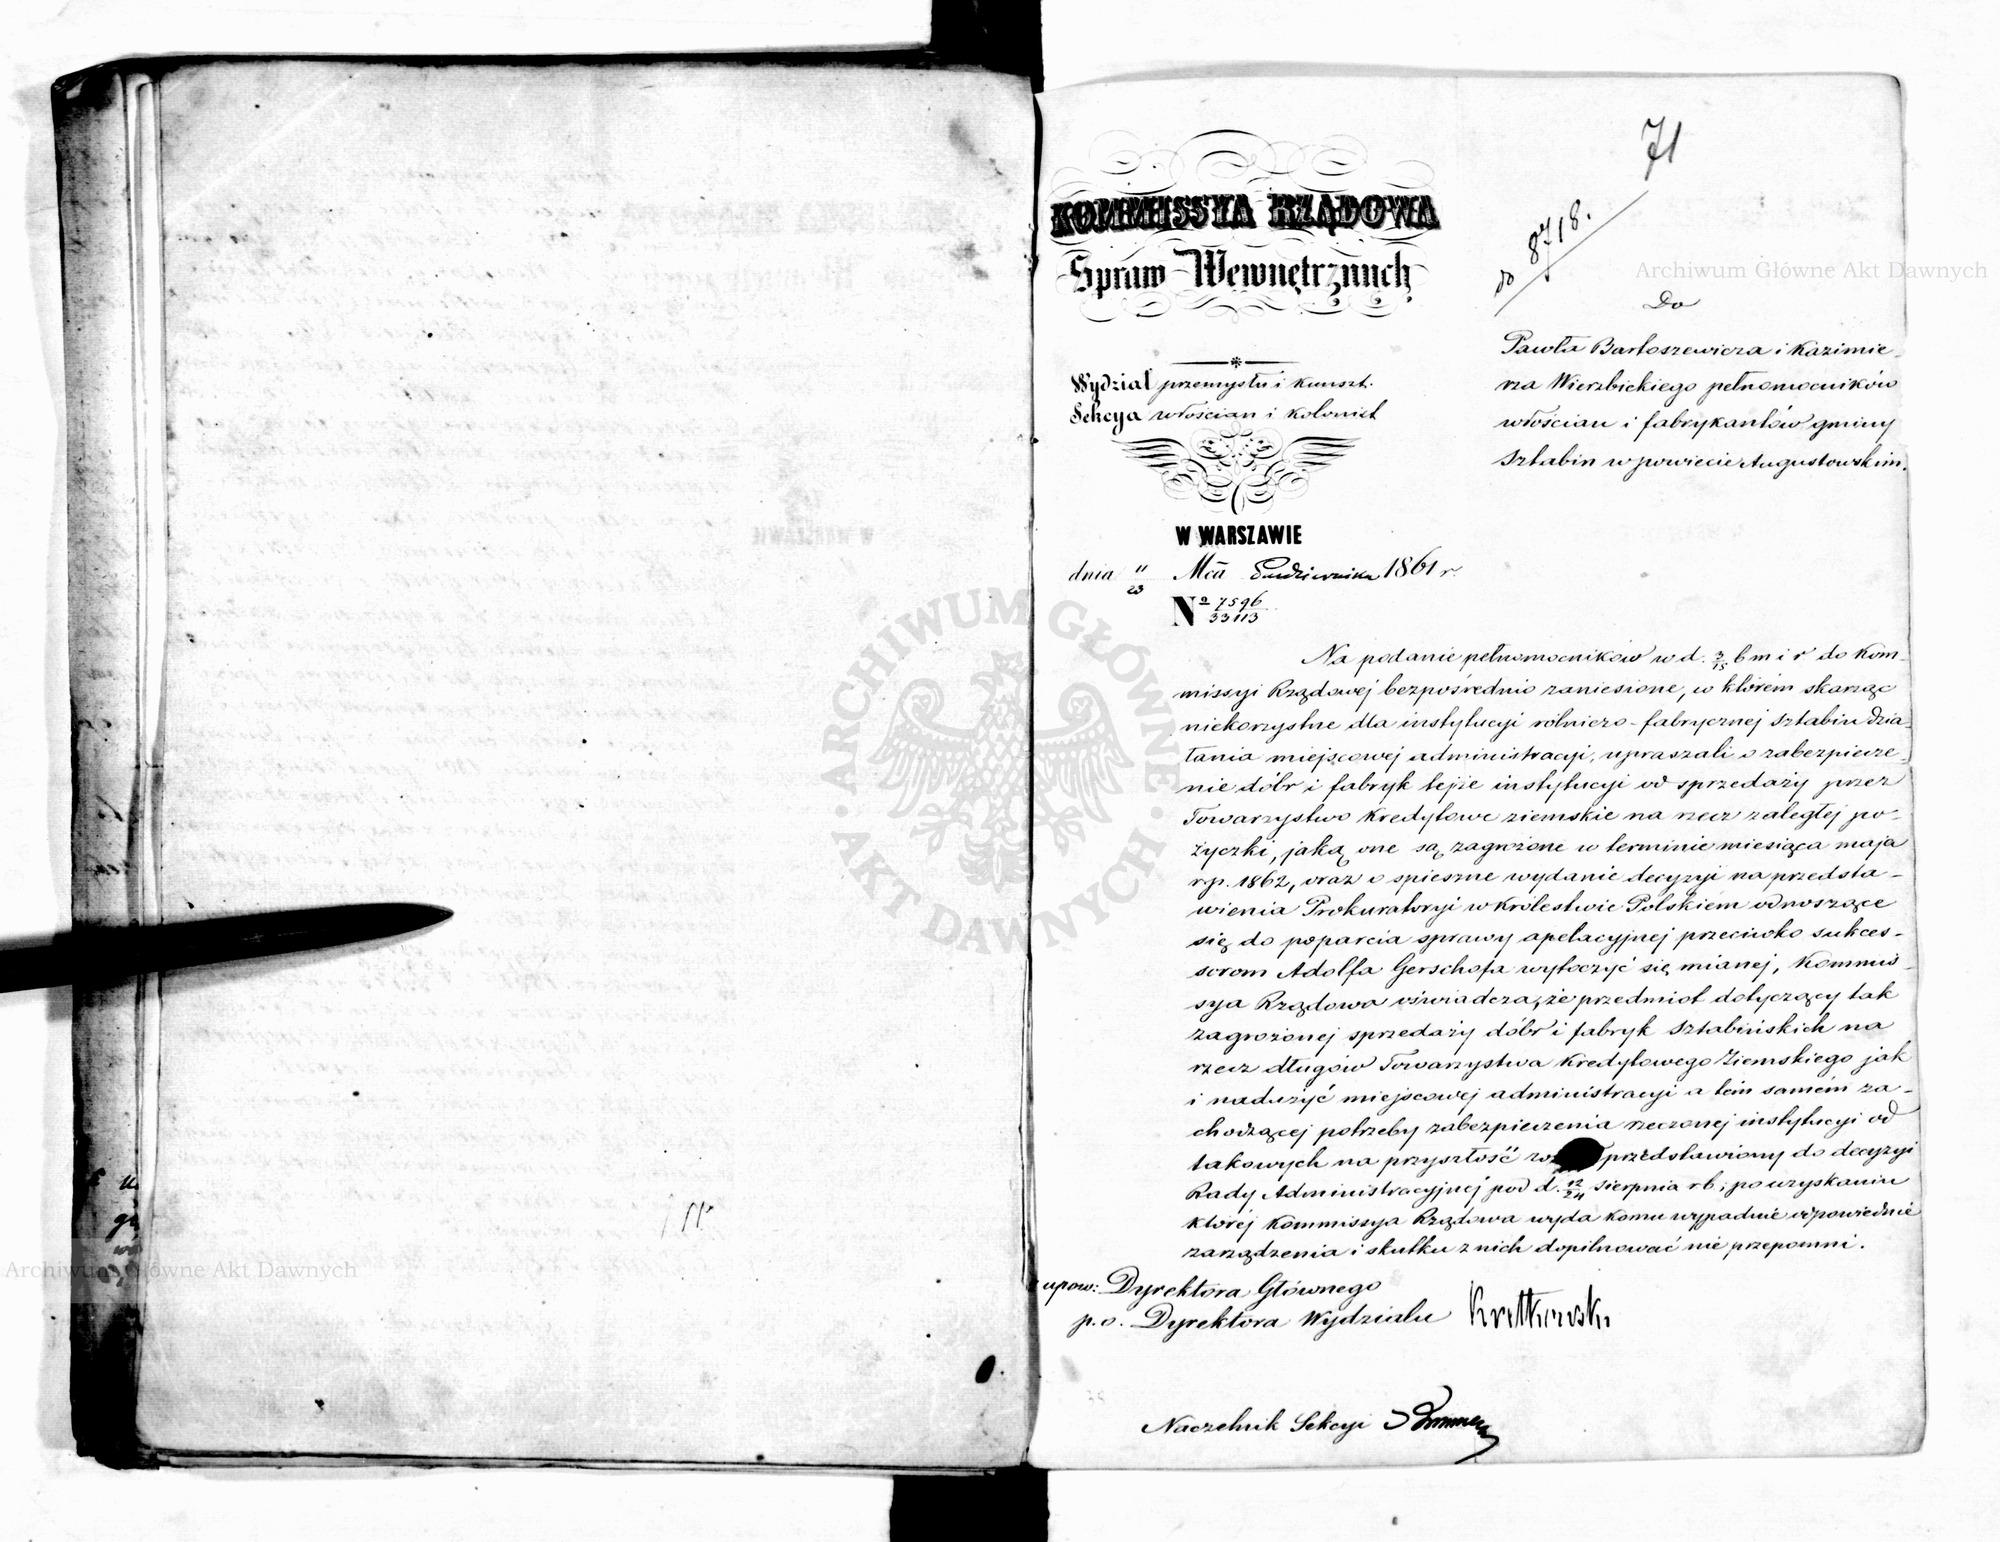 71
do 8718.
KOMMISSYA RZĄDOWA
Spraw Wewnętrznych
Wydział przemysłu i kunszt.
Sekcya włościan i kolonist
W WARSZAWIE
dnia 11/23 Mca Października 1861 r.
No 7596/33113
Do
Pawła Bartoszewicza i Kazimie-
rza Wierzbickiego pełnomocników
włościan i fabrykantów gminy
Sztabin w powiecie Augustowskim.
Na podanie pełnomocników w d. 3/15 b m i r do Kom-
missyi Rządowej bezpośrednio zaniesione, w którém skarżąc
niekorzystne dla instytucyi rolniczo-fabrycznej Sztabin dzia-
łania miejscowej administracyi, upraszali o zabezpiecze-
nie dóbr i fabryk tejże instytucyi od sprzedaży przez
Towarzystwo Kredytowe ziemskie na rzecz zaległej po-
życzki, jaką one są zagrożone w terminie miesiąca maja
r.p. 1862, oraz o spieszne wydanie decyzyi na przedsta-
wienia Prokuratoryi w Królestwie Polskiem odnoszące
się do poparcia sprawy apelacyjnej przeciwko sukces-
sorom Adolfa Gerschofa wytoczyć się mianej, Kommis-
sya Rządowa oświadcza, że przedmiot dotyczący tak
zagrożonej sprzedaży dóbr i fabryk Sztabińskich na
rzecz długów Towarzystwa Kredytowego Ziemskiego jak
i nadużyć miejscowej administracyi a tém samém za-
chodzącej potrzeby zabezpieczenia rzeczonej instytucyi od
takowych na przyszłość przedstawiony do decyzyi
Rady Administracyjnej pod d. 12/24 sierpnia r b; po uzyskaniu
której Kommissya Rządowa wyda komu wypadnie odpowiednie
zarządzenia i skutku z nich dopilnować nie przepomni.
upow: Dyrektora Głównego
p.o. Dyrektora Wydziału Kretkowski
Naczelnik Sekcyi
Archiwum Główne Akt Dawnych
Archiwum Główne Akt Dawnych
ARCHIWUM GŁÓWNE AKT DAWNYCH